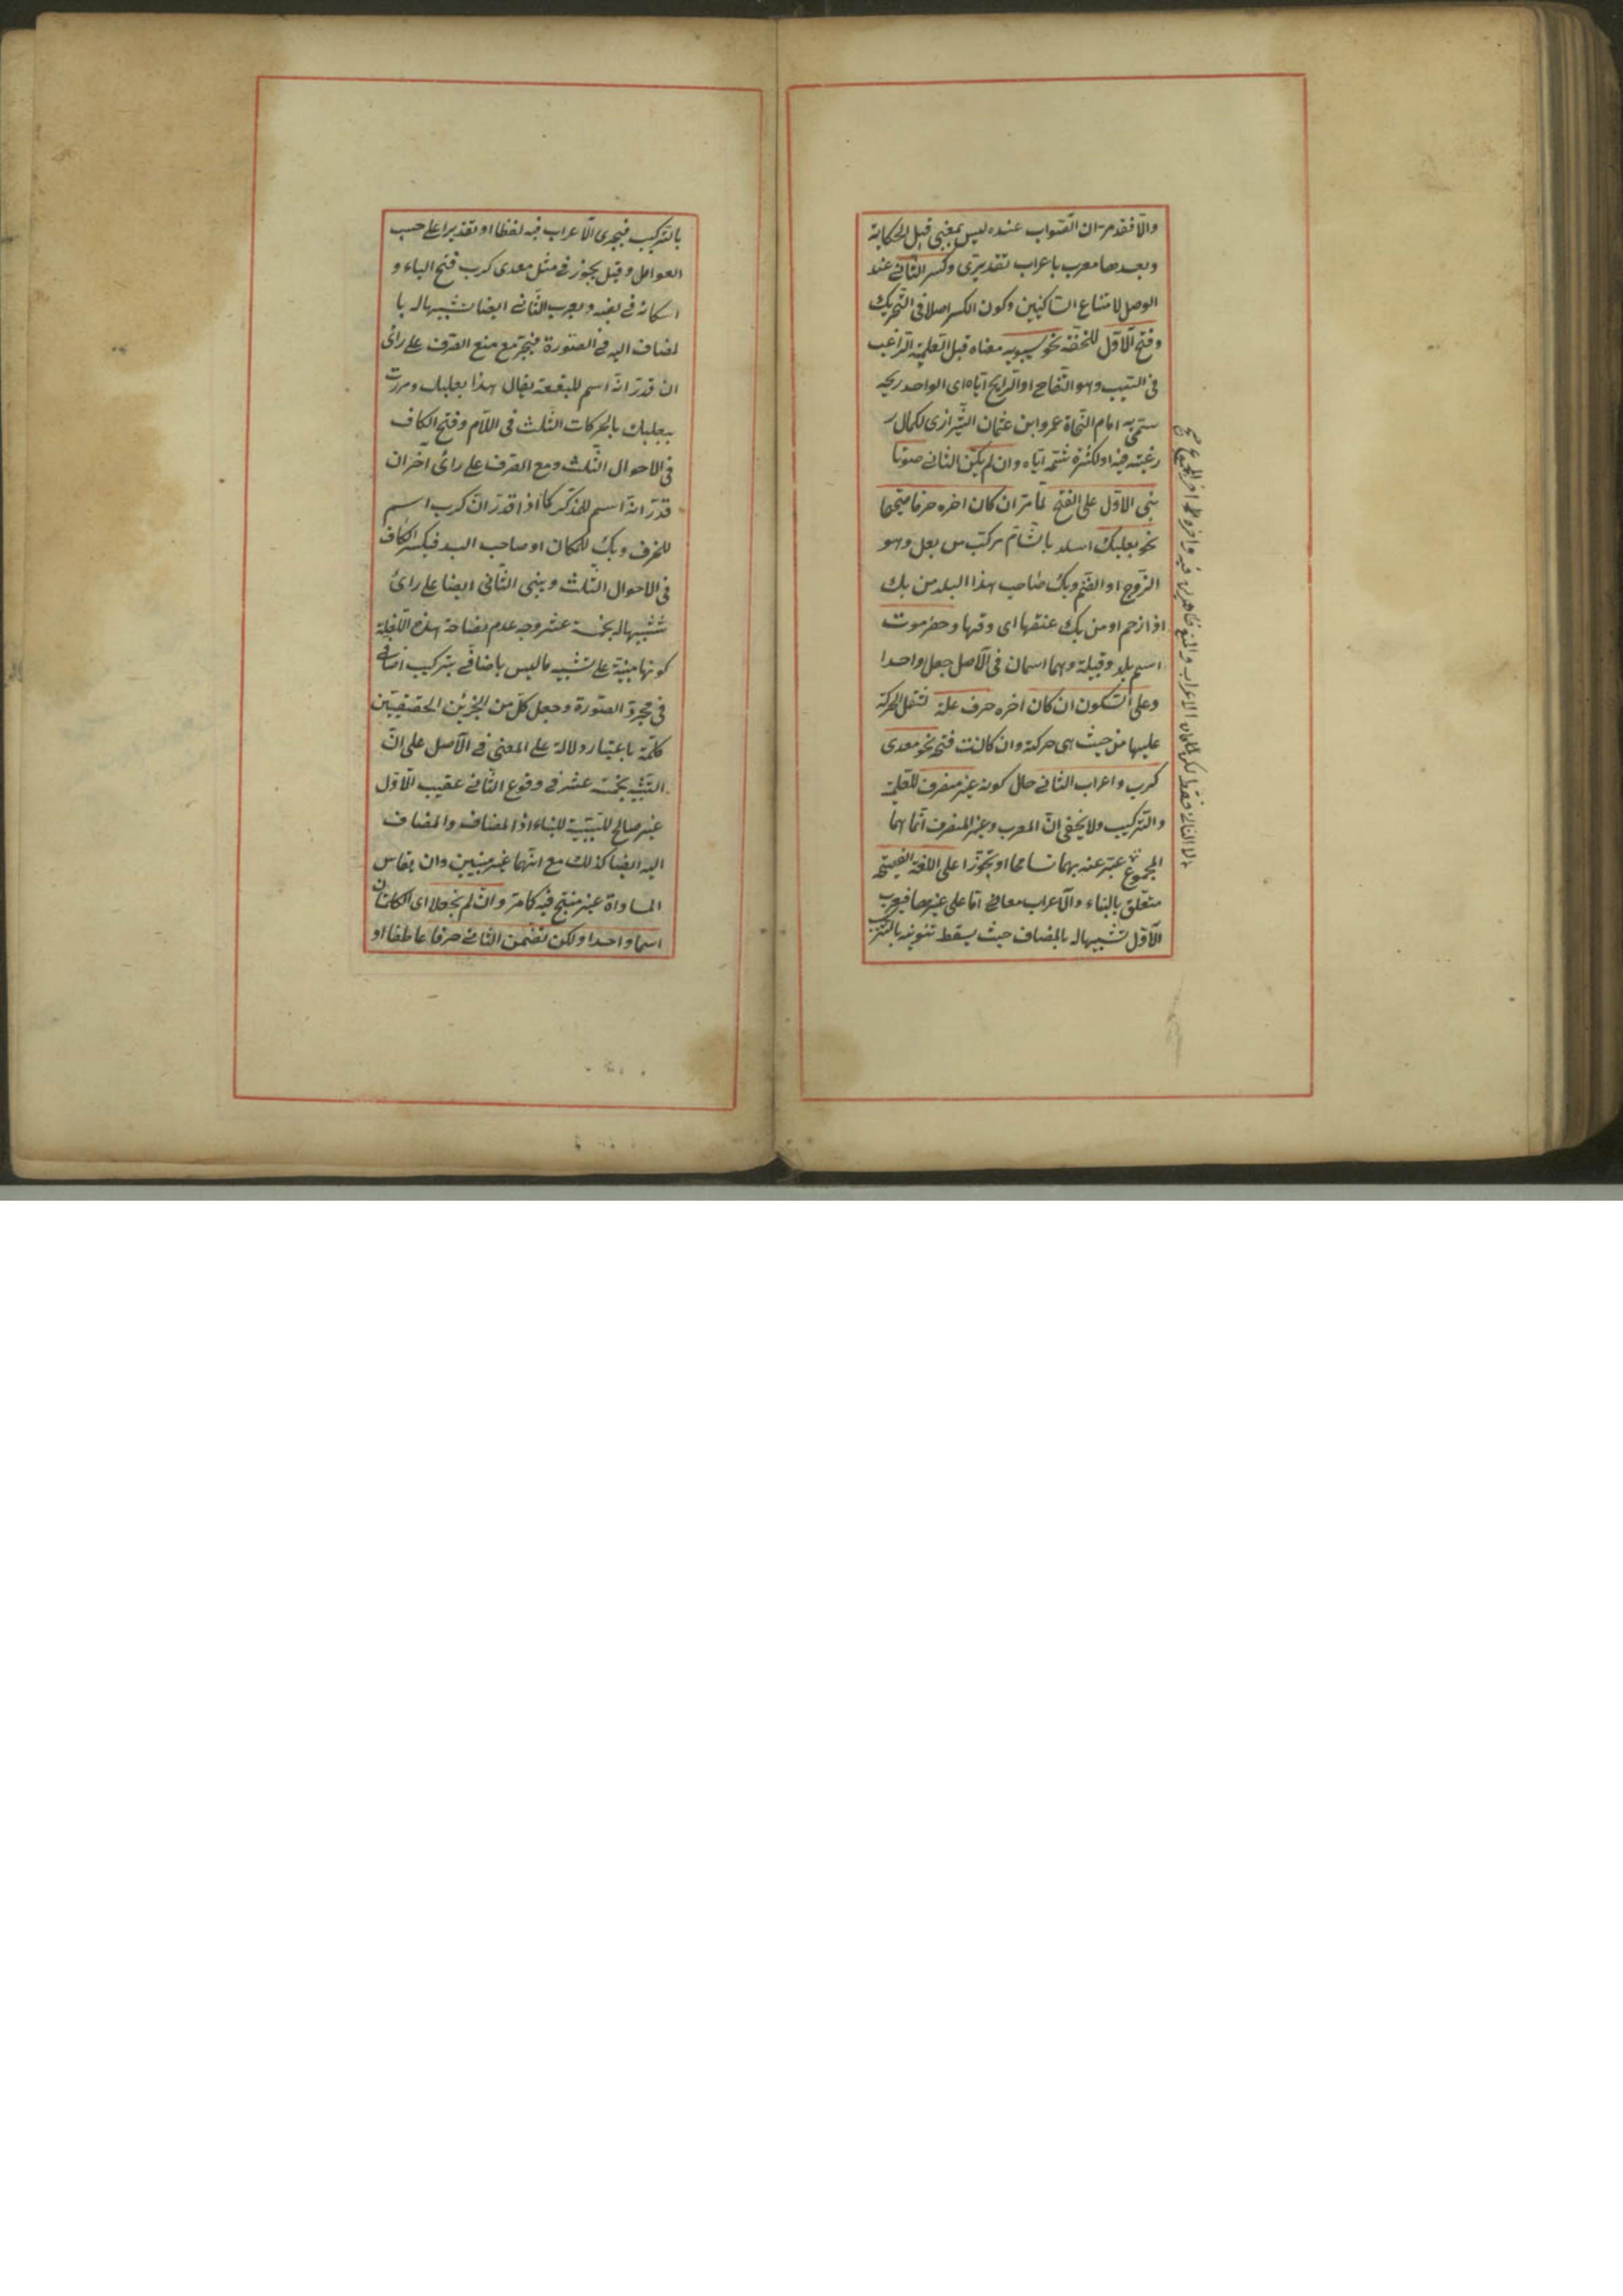 والّا فقد مرّ انّ الصّواب عنده ليس بمبنى قبل الحكاية
وبعدها معرب باعراب تقديرىّ وكسر الثّانى عند
الوصل لامتناع السّاكنين وكون الكسر اصلا فى التّحريك
وفتح الاوّل للخفّة نحو سيبويه معناه قبل العلميّة الرّاغب
فى السّيب وهو التّفاح او الرايح اياه اى الواجد ريحه
سمّى به امام النّحاة عمرو ابن عثمان الشّيرازى لكمال
رغبته فيه او لكثرة شمّه اياه وان لم يكن الثانى صوتا
بنى الاوّل على الفتح لما مرّ ان كان اخره حرفا صحيحا
نحو بعلبك اسلد بالشّام مركّب من بعل وهو
الزّوج او الصّنم وبك صاحب هذا البلد من بك
اذا زحم او من بك عنقها اى دقها وحضرموت
اسم بلد وقبيلة وهما اسمان فى الاصل جعل واحدا
وعلى السّكون ان كان اخره حرف علّة لثقل الحركة
عليها من حيث هى حركة وان كانت فتح نحو معدى
كرب واعراب الثانى حال كونه غير منصرف للعلميّة
والتّركيب ولا يخفى انّ المعرب وغير المنصرف انّما هما
المجموع عبّر عنه بهما تسامحا او تجوّزا على اللغة الفصيحة
متعلّق بالبناء والاعراب معا فى امّا على غيرها فيعرب
الاوّل تشبيها له بالمضاف حيث يسقط تنوينه بالتّركيب
بالتّركيب فيجرى الاعراب فيه لفظا او تقديرا على حسب
العوامل وقيل يجوز فى مثل معدى كرب فتح الياء و
اسكانه فى نصبه ويعرب الثّانى ايضا تشبيها له با
لمضاف اليه فى الصّورة فينجرّ مع منع الصّرف على رائ
ان قدّر انّه اسم للبقعة يقال هذا بعلبك ومررت
ببعلبك بالحركات الثّلث فى اللّام وفتح الكاف
فى الاحوال الثّلث ومع الصّرف على رائ اخر ان
قدّر انّه اسم للمذكّر كما اذا قدّر انّ كرب اسم
للحرف وبك للمكان او صاحب البلد فيكسر الكاف
فى الاحوال الثّلث ويبنى الثّانى ايضا على رائ
تشبيها له بخمسة عشر وجه عدم فصاحة هذه اللّغة
كونها مبنيّة على تشبيه ما ليس باضافى بتركيب اضافى
فى مجرّد الصّورة وجعل كلّ من الجزئين الحقيقيّين
كلمّة باعتبار دلالة على المعنى فى الاصل على انّ
التّشبيه بخمسة عشر فى وقوع الثّانى عقيب الاوّل
غير صالح للسّببيّة للبناء اذ المضاف والمضاف
اليه ايضا كذلك مع انّهما غير مبنيين وان يقاس
المساواة غير منتج فيه كما مرّ وان لم يجعلا اى الكلمتان
اسما واحدا ولكن تضمن الثانى حرفا عاطفا او